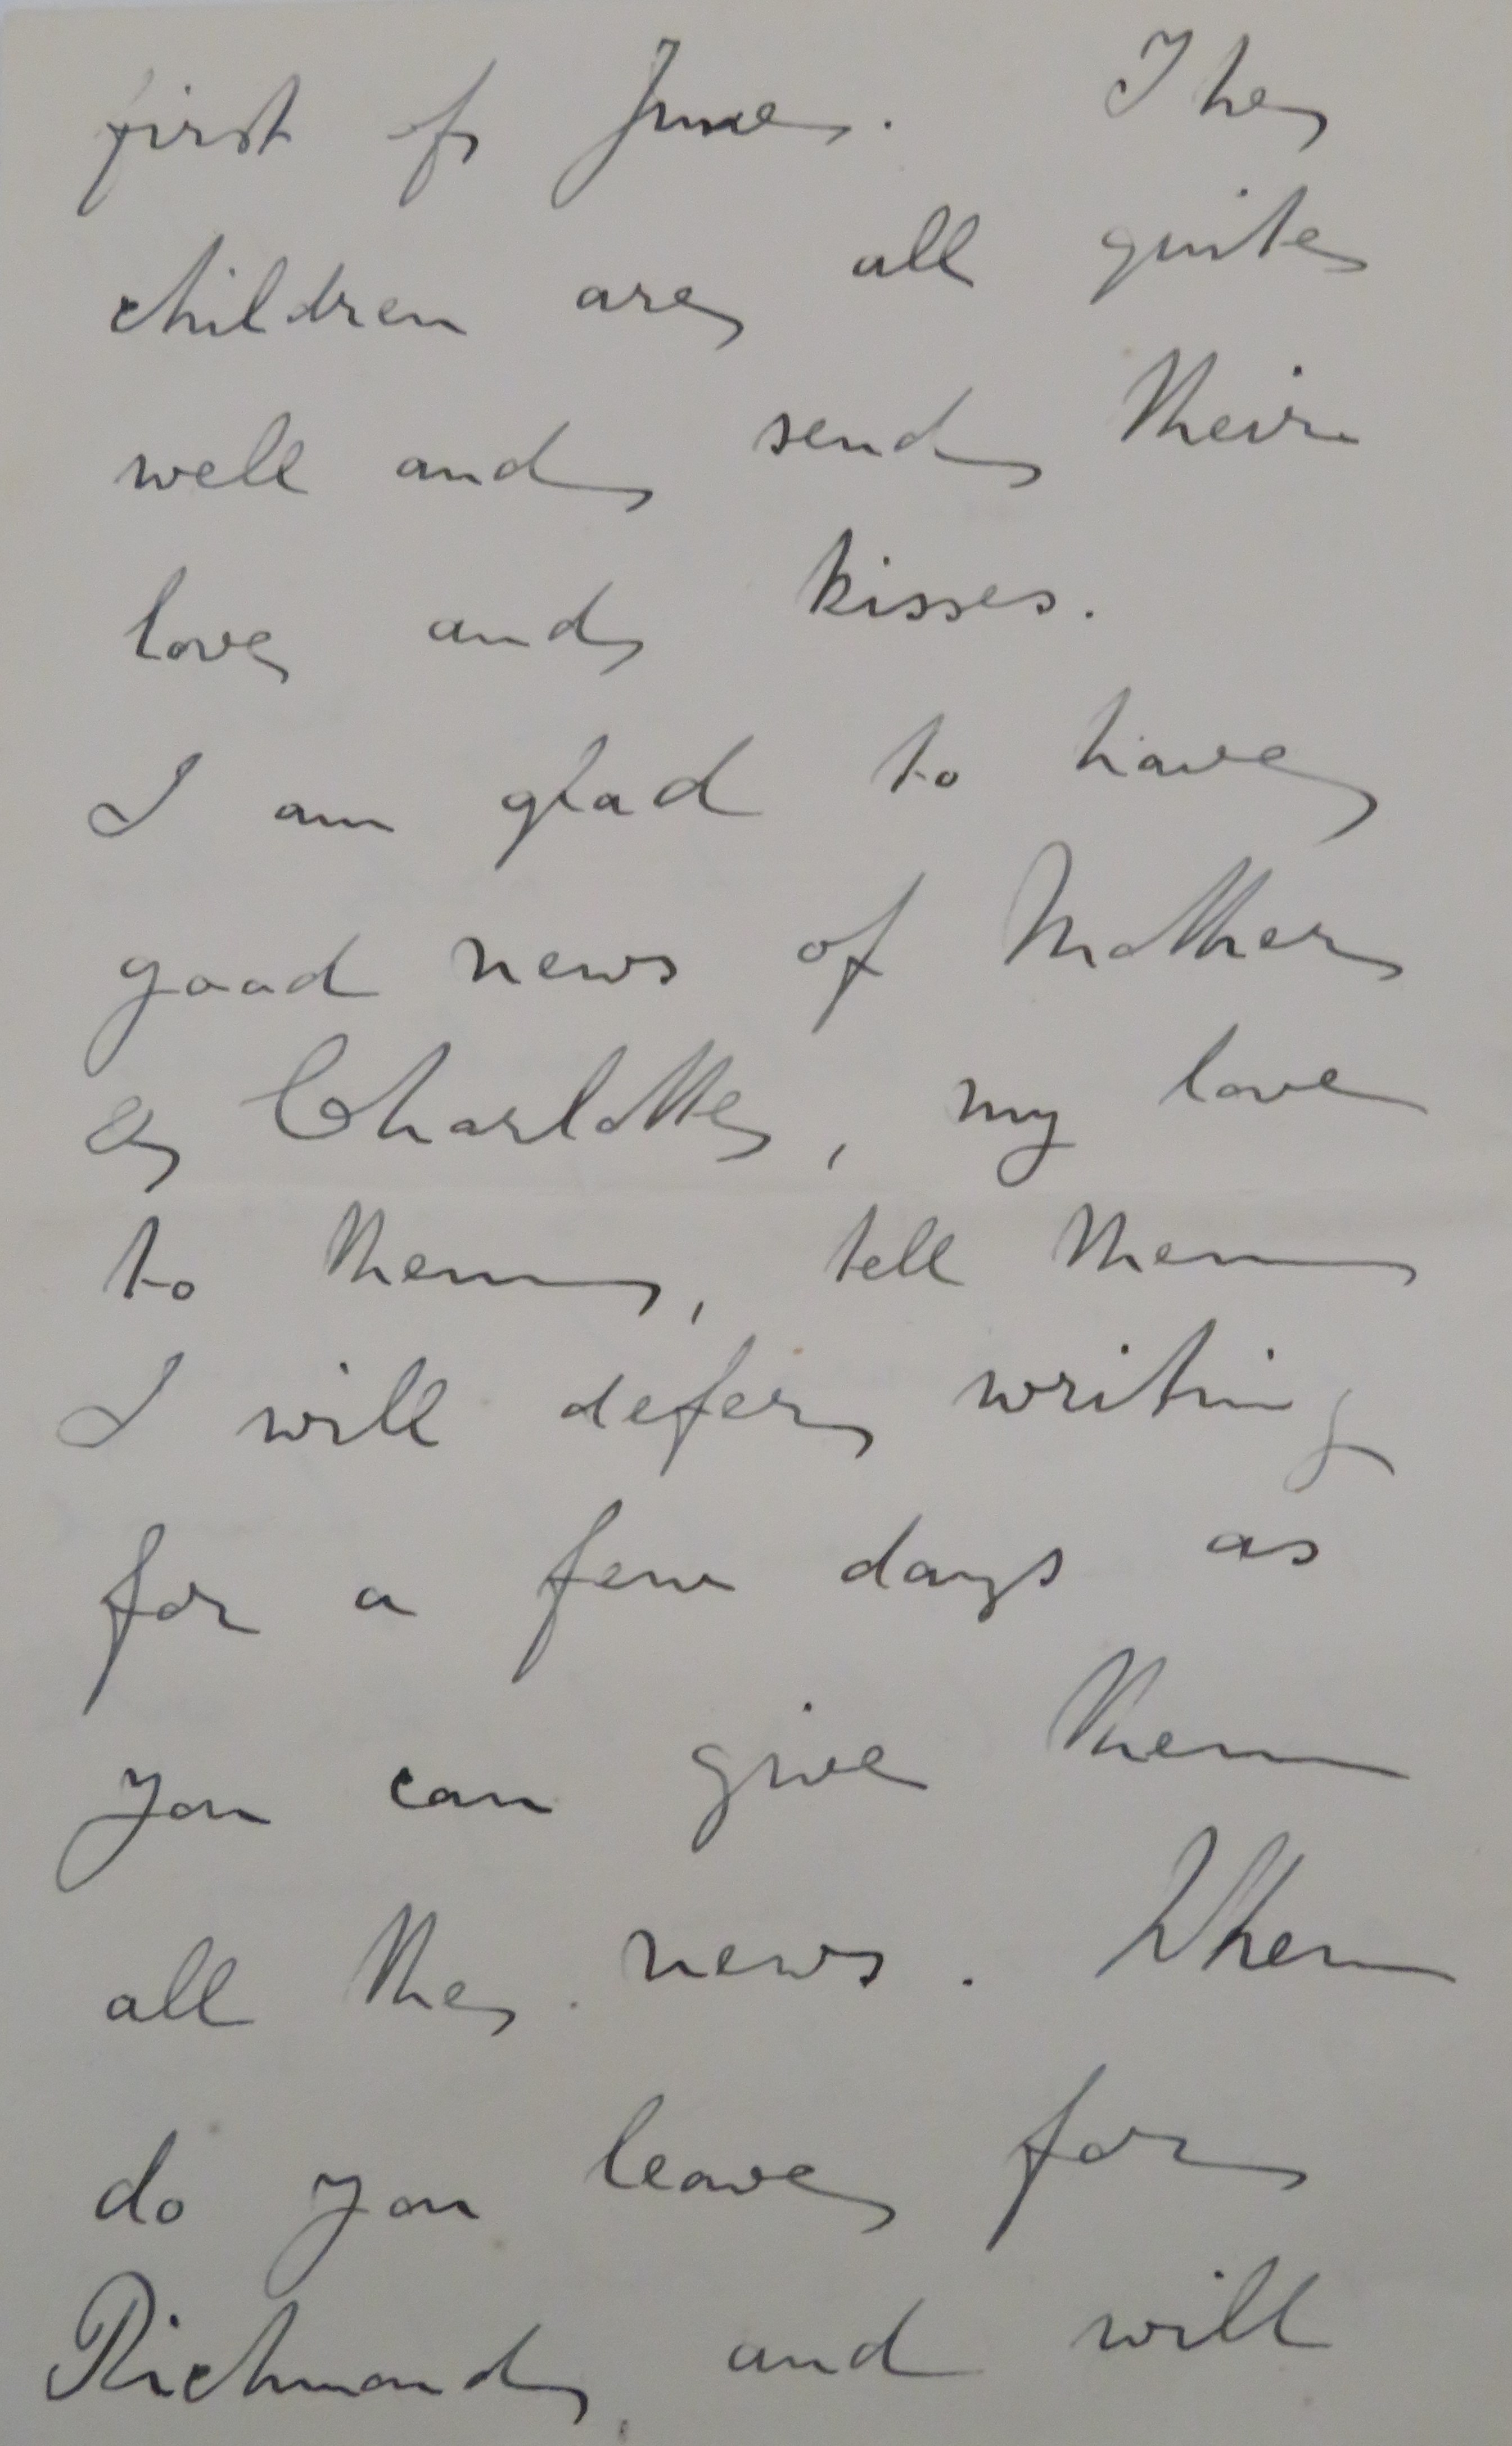 first of June. The
children are all quite
well and send their
love and kisses.
I am glad to have
good news of Mother
& Charlotte, my love
to them, tell them
I will defer writing
for a few days as
you can give them
all the news. When
do you leave for
Richmond, and will